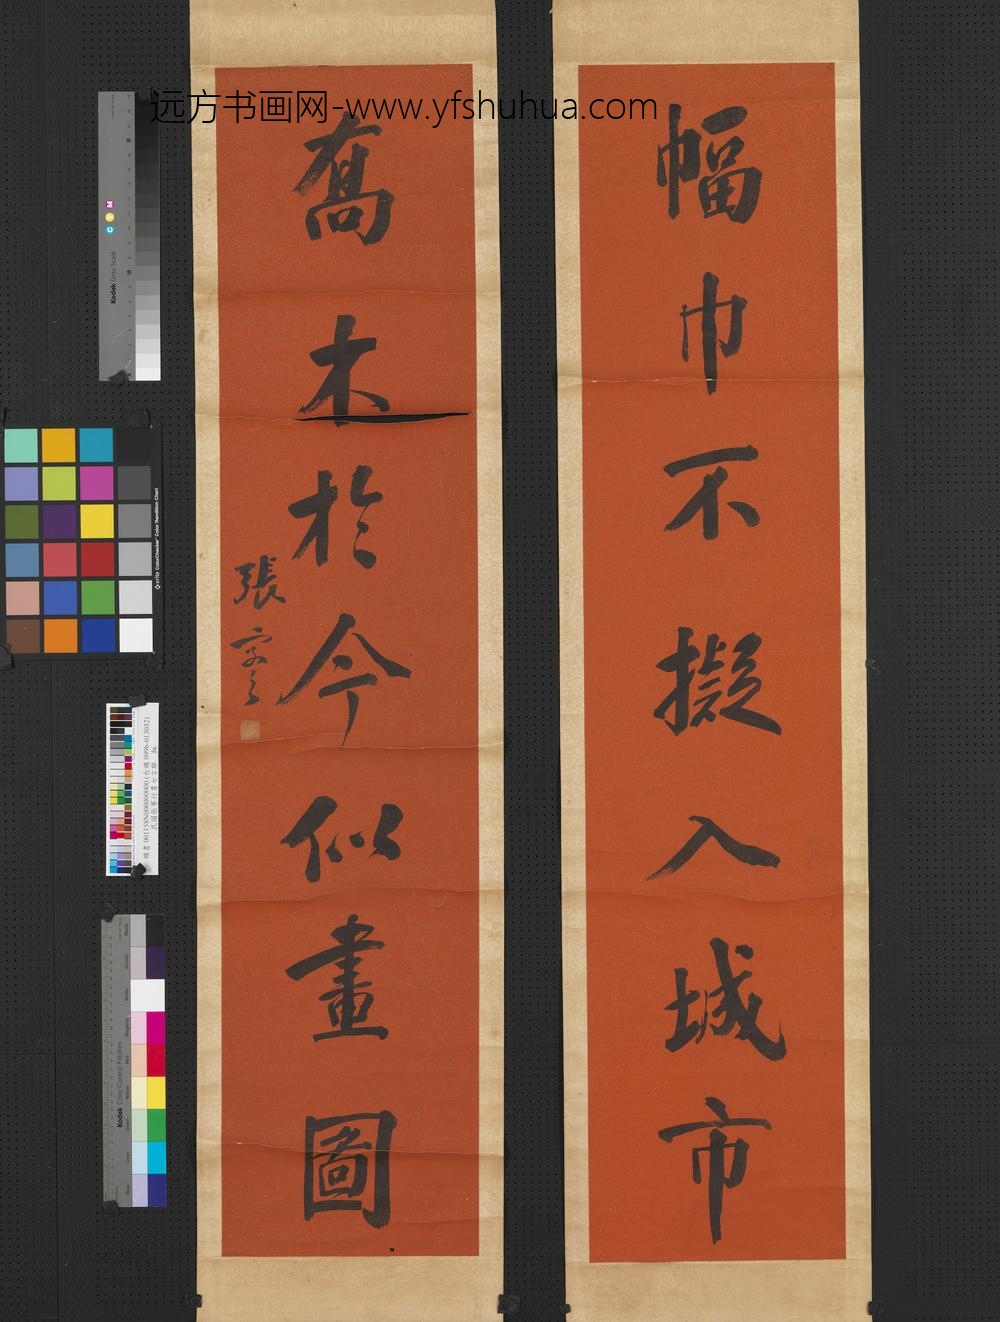 远方书画网-www.yfshuhua.com
幅巾不擬入城市
喬木於今似畫圖
張謇
Kodak Gray Scale
C Y M
x-rite ColorChecker Color Rendition Chart
Kodak Color Control Patches